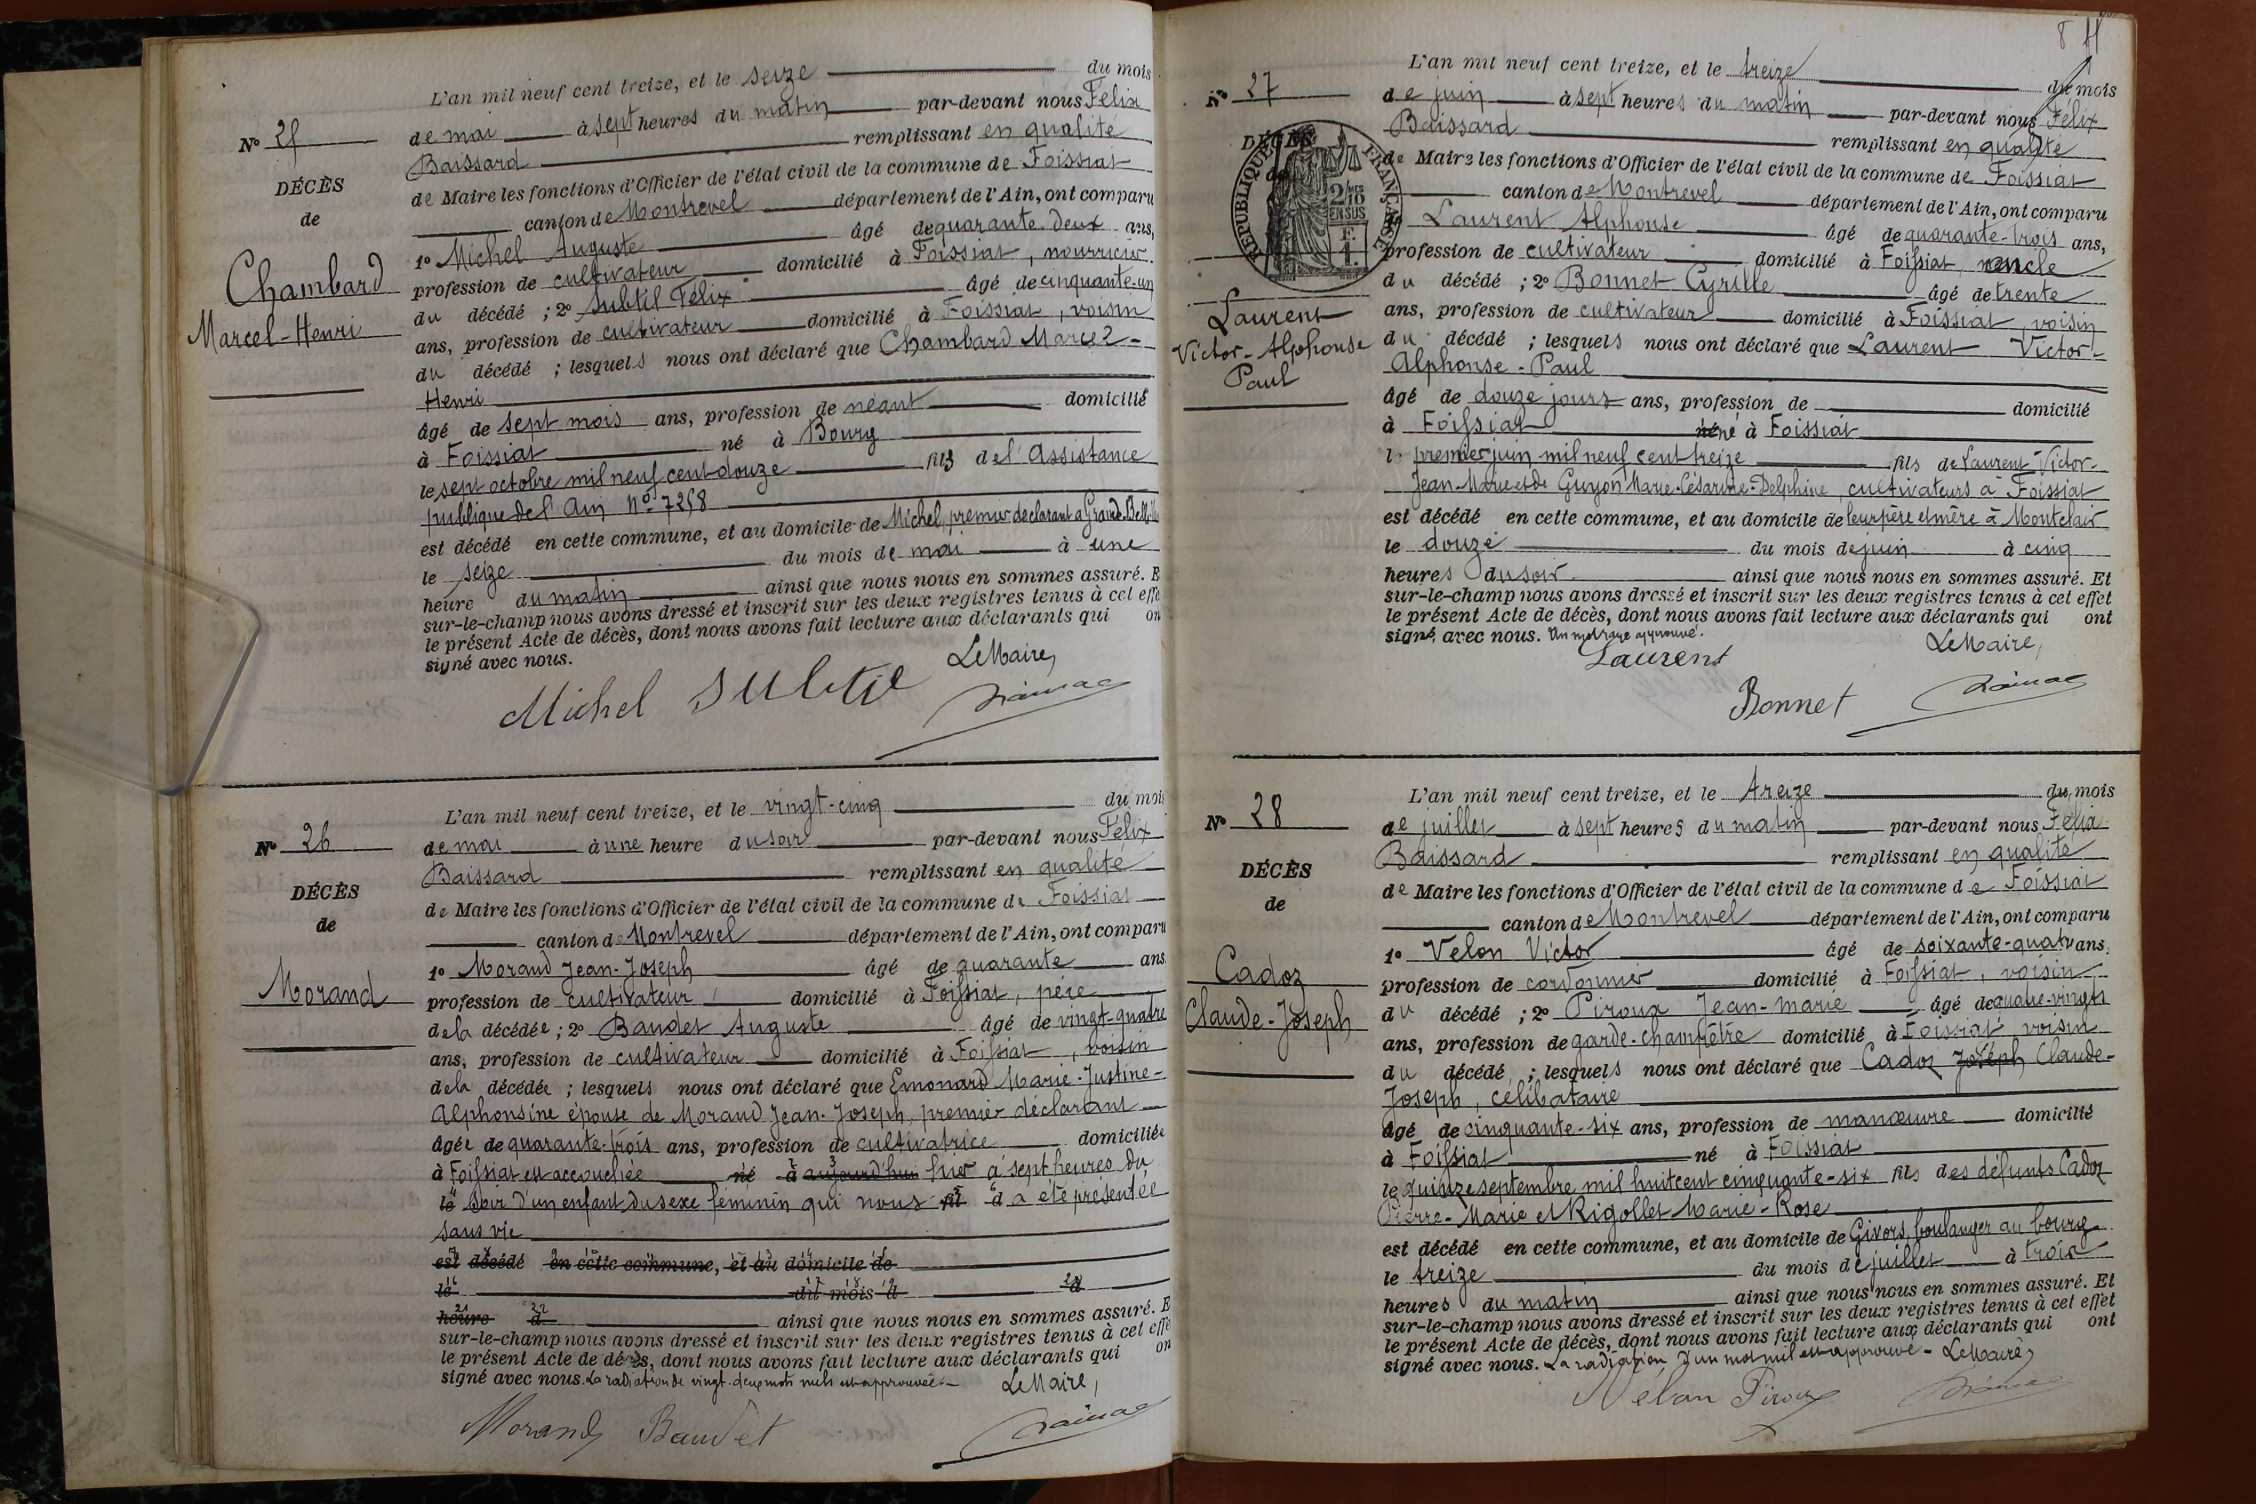 L'an mil neuf cent treize, et le seize du mois
de mai à sept heures du matin par-devant nous Félix
Baissard remplissant en qualité
de Maire les fonctions d'Officier de l'état civil de la commune de Foissiat
canton de Montrevel département de l'Ain, ont comparu
1º Michel Auguste âgé de quarante-deux ans,
profession de cultivateur domicilié à Foissiat, nourricier
du décédé ; 2º Subtil Félix âgé de cinquante-un
ans, profession de cultivateur domicilié à Foissiat, voisin
du décédé ; lesquels nous ont déclaré que Chambard Marcel-
Henri
âgé de sept mois ans, profession de néant domicilié
à Foissiat né à Bourg
le sept octobre mil neuf cent douze fils de l'Assistance
publique de l'Ain Nº 7258
est décédé en cette commune, et au domicile de Michel, premier déclarant à Grand
le seize du mois de mai à une
heure du matin ainsi que nous nous en sommes assuré. E
sur-le-champ nous avons dressé et inscrit sur les deux registres tenus à cet effe
le présent Acte de décès, dont nous avons fait lecture aux déclarants qui on
signé avec nous.
Le Maire,
Michel Subtil
Nº 25
DÉCÈS
de
Chambard
Marcel-Henri
L'an mil neuf cent treize, et le vingt-cinq du mois
de mai à une heure du soir par-devant nous Félix
Baissard remplissant en qualité
de Maire les fonctions d'Officier de l'état civil de la commune de Foissiat
canton de Montrevel département de l'Ain, ont comparu
1º Morand Jean-Joseph âgé de quarante ans
profession de cultivateur domicilié à Foissiat, père
de la décédée ; 2º Baudet Auguste âgé de vingt-quatre
ans, profession de cultivateur domicilié à Foissiat, voisin
de la décédée ; lesquels nous ont déclaré que Emonard Marie-Justine-
Alphonsine épouse de Morand Jean-Joseph, premier déclarant
âgée de quarante-trois ans, profession de cultivatrice domiciliée
à Foissiat est accouchée né à aujourd'hui hier à sept heures du
le soir d'un enfant du sexe féminin qui nous fil d a été présentée
sans vie
est décédé en cette commune, et au domicile de
le du mois d à
heure d ainsi que nous nous en sommes assuré. E
sur-le-champ nous avons dressé et inscrit sur les deux registres tenus à cet effe
le présent Acte de décès, dont nous avons fait lecture aux déclarants qui on
signé avec nous. La radiation de vingt-deux mots nuls est approuvée.
Le Maire,
Morand Baudet
Nº 26
DÉCÈS
de
Morand
8
L'an mil neuf cent treize, et le treize du mois
de juin à sept heures du matin par-devant nous Félix
Baissard remplissant en qualité
de Maire les fonctions d'Officier de l'état civil de la commune de Foissiat
canton de Montrevel département de l'Ain, ont comparu
Laurent Alphonse âgé de quarante-trois ans,
profession de cultivateur domicilié à Foissiat, oncle
du décédé ; 2º Bonnet Cyrille âgé de trente
ans, profession de cultivateur domicilié à Foissiat, voisin
du décédé ; lesquels nous ont déclaré que Laurent Victor-
Alphonse-Paul
âgé de douze jours ans, profession de domicilié
à Foissiat né né à Foissiat
le premier juin mil neuf cent treize fils de Laurent Victor-
Jean-Marie et de Guyon Marie-Césarine-Delphine, cultivateurs à Foissiat
est décédé en cette commune, et au domicile de leur père et mère à Montclair
le douze du mois de juin à cinq
heures du soir ainsi que nous nous en sommes assuré. Et
sur-le-champ nous avons dressé et inscrit sur les deux registres tenus à cet effet
le présent Acte de décès, dont nous avons fait lecture aux déclarants qui ont
signé avec nous. Un mot rayé approuvé.
Le Maire,
Laurent
Bonnet
Nº 27
DÉCÈS
de
RÉPUBLIQUE FRANÇAISE
2/MES 10
EN SUS
F.
1.
Laurent
Victor-Alphonse
Paul
L'an mil neuf cent treize, et le treize du mois
de juillet à sept heures du matin par-devant nous Félix
Baissard remplissant en qualité
de Maire les fonctions d'Officier de l'état civil de la commune de Foissiat
canton de Montrevel département de l'Ain, ont comparu
1º Velon Victor âgé de soixante-quatre ans
profession de cordonnier domicilié à Foissiat, voisin
du décédé ; 2º Piroux Jean-Marie âgé de quatre-vingts
ans, profession de garde-champêtre domicilié à Foissiat voisin
du décédé ; lesquels nous ont déclaré que Cadoz Joseph Claude-
Joseph, célibataire
âgé de cinquante-six ans, profession de manœuvre domicilié
à Foissiat né à Foissiat
le quinze septembre mil huit cent cinquante-six fils des défunts Cadoz
Pierre-Marie et Rigollet Marie-Rose
est décédé en cette commune, et au domicile de Givors, boulanger au bourg
le treize du mois de juillet à trois
heures du matin ainsi que nous nous en sommes assuré. Et
sur-le-champ nous avons dressé et inscrit sur les deux registres tenus à cet effet
le présent Acte de décès, dont nous avons fait lecture aux déclarants qui ont
signé avec nous. La radiation d'un mot nul est approuvé - Le Maire,
Velon Piroux
Nº 28
DÉCÈS
de
Cadoz
Claude-Joseph